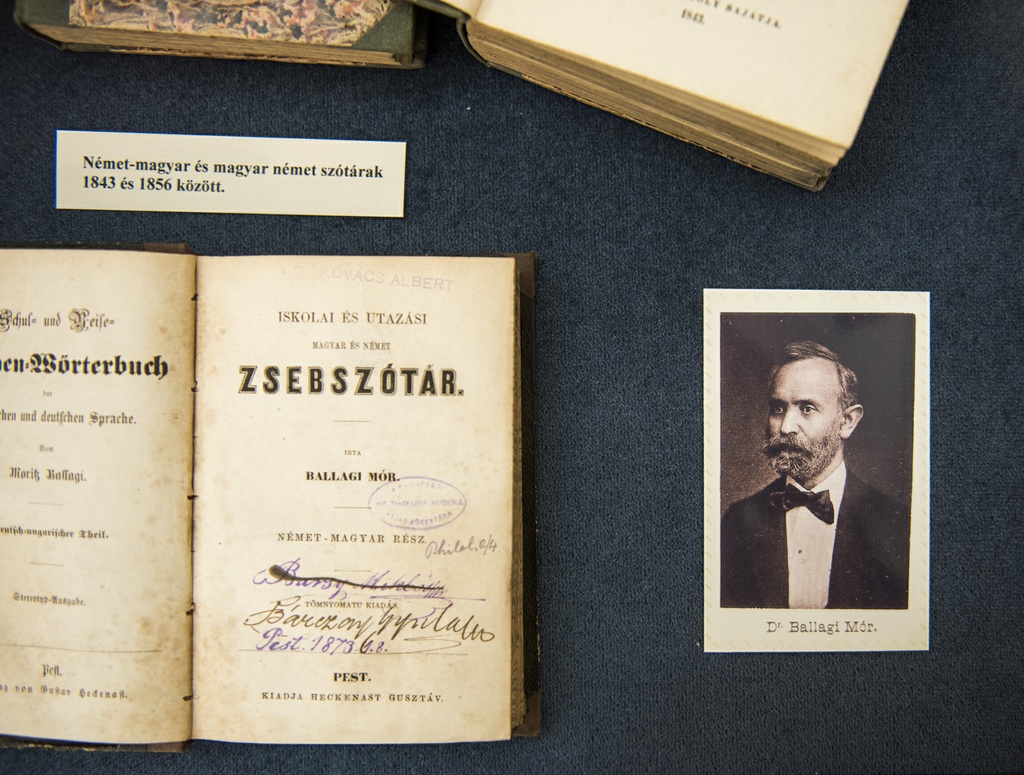 SAJÁTJA.
1843.
Német-magyar és magyar német szótárak
1843 és 1856 között.
Schul- und Reise-
en-Wörterbuch
der
chen und deutschen Sprache.
Von
Moritz Ballagi.
eutsch-ungarischer Theil.
Stereotyp-Ausgabe.
Pest.
von Gustav Heckenast.
KOVÁCS ALBERT
ISKOLAI ÉS UTAZÁSI
MAGYAR ÉS NÉMET
ZSEBSZÓTÁR.
IRTA
BALLAGI MÓR.
NÉMET-MAGYAR RÉSZ.
Philol. 
TÖMNYOMATU KIADÁS.
Pest. 1873. 6.8.
PEST.
KIADJA HECKENAST GUSZTÁV.
Dr. Ballagi Mór.